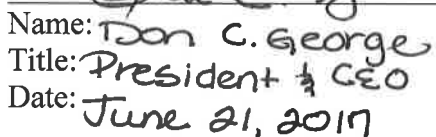 Name: Don C. George
Title: President & CEO
Date: June 21, 2017